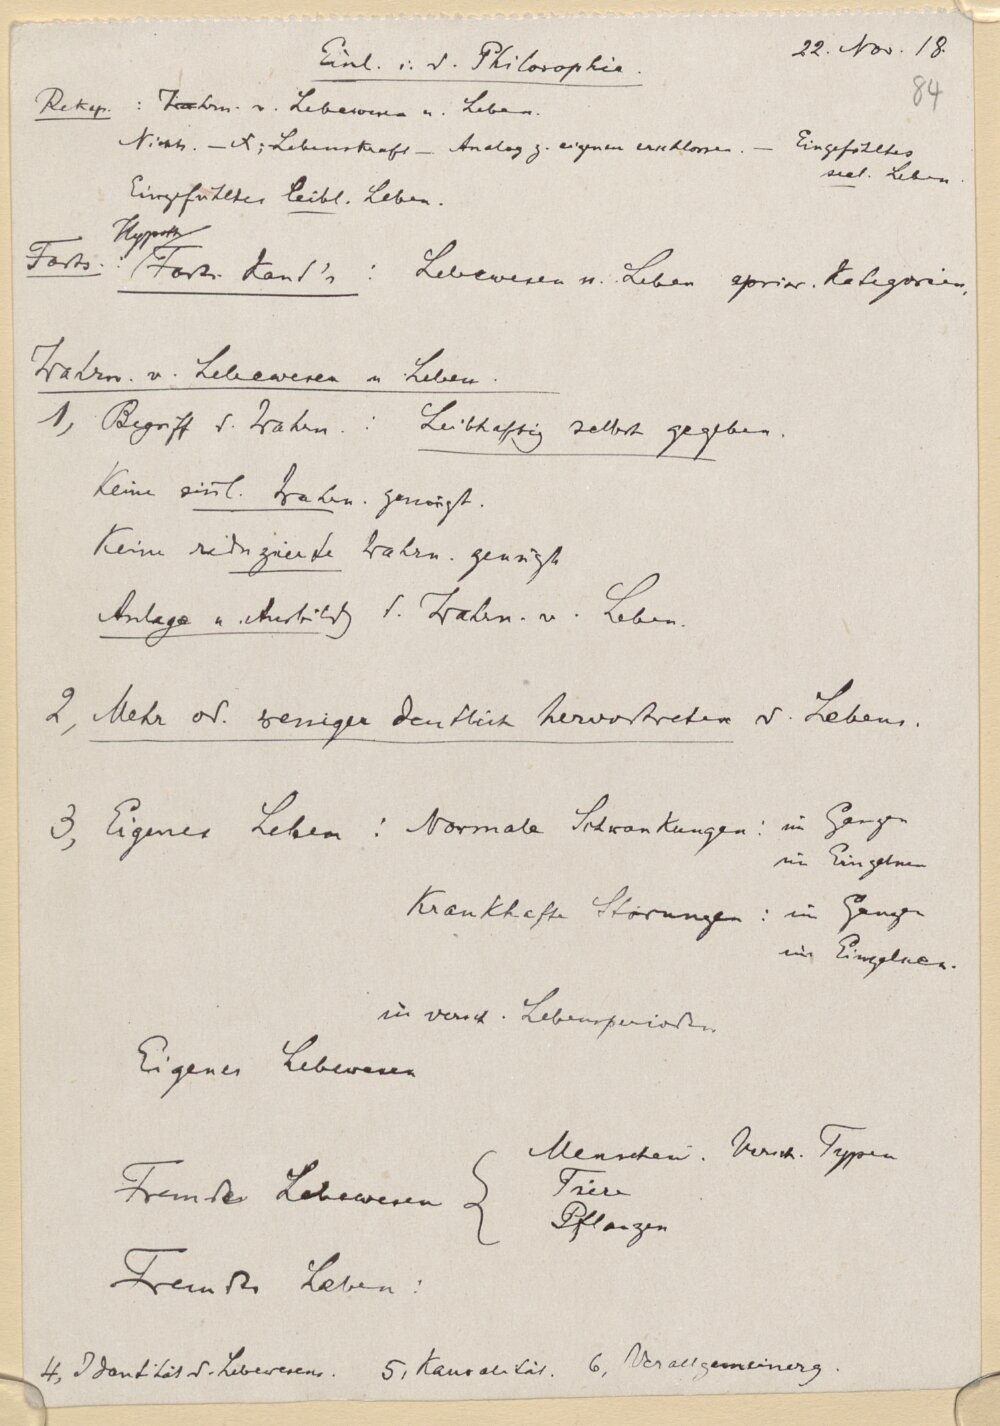 Einl. i. d. Philosophie.
22. Nov. 18.
84
Rekap. : Wahrn. v. Lebewesen u. Leben.
Nichts. — Lebenskraft — Analog z. eigenen erschlossen. — Eingefühltes
seel. Leben.
Eingefühltes leibl. Leben.
Hypoth
Forts. : Forts. Kand's : Lebewesen u. Leben aprior. Kategorien.
Wahrn. v. Lebewesen u Leben.
1, Begriff d. Wahrn. : Leibhaftig selbst gegeben.
Keine sinnl. Wahrn. genügt.
Keine reduzierte Wahrn. genügt
Anlage u. Ausbildg d. Wahrn. v. Leben.
2, Mehr od. weniger deutlich hervortreten d. Lebens.
3, Eigenes Leben : Normale Schwankungen : im Ganzen
im Einzelnen
Krankhafte Störungen : im Ganzen
im Einzelnen.
in versch. Lebensperioden
Eigenes Lebewesen
Fremdes Lebewesen { Menschen. Versch. Typen
Tiere
Pflanzen
Fremdes Leben :
4, Identität d. Lebewesens. 5, Kausalität. 6, Verallgemeinerg.